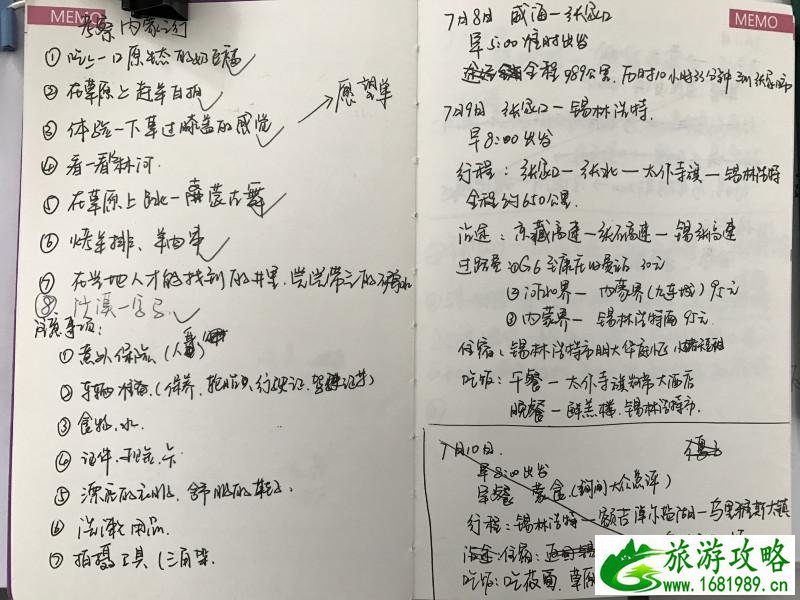 MEMO
考察内蒙之行
① 吃上一口原生态的奶
② 在草原上赶羊自拍
③ 体验一下草过膝盖的感觉
→ 愿望单
④ 看一看 林河.
⑤ 在草原上 一 蒙古舞
⑥ 烤羊排、羊肉串
⑦ 在当地人才能找到的井里,尝尝带 的
⑧
注意事项:
① 意外保险 (人
② 车辆准备 (保养, 轮胎, 行驶证, 驾驶证等)
③ 食物, 水.
④ 证件, 现金, 卡
⑤ 漂亮的衣服, 舒服的鞋子
⑥ 洗漱用品
⑦ 拍摄工具 (三角架.
MEMO
7月8日 威海一张家口
早5:00准时出发
全程989公里, 历时10小时 分钟 到张家口市
7月9日 张家口一锡林浩特.
早8:00出发
行程: 张家口 — 张北 — 太仆寺旗 — 锡林浩特
全程约650公里.
沿途: 京藏高速—张石高速 — 锡张高速
过路费 ①G6至康庄 站 30元
②河北界 — 内蒙界 (九连城) 95元
③ 内蒙界 — 锡林浩特南 95元.
住宿: 锡林浩特市
吃饭: 午餐 — 太仆寺旗 大酒店
晚餐 — 鲜羔楼. 锡林浩特市.
7月10日.
早8:00出发
早餐 蒙食 ( 大众点评)
行程: 锡林浩特 — 额吉淖尔盐湖 — 乌里雅斯太镇
住宿:
吃饭: 吃莜面, 草原
旅游攻略
www.1681989.cn